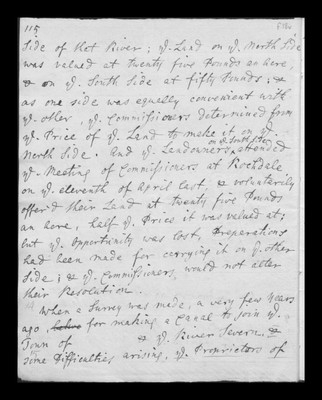 115
Side of that River; ye. Land on ye. North Side
was valued at twenty five Pounds an Acre,
& on ye. South Side at fifty Pounds; &
as one side was equally convenient with
ye. other, ye. Commissioners determined from
ye. Price of ye. Land to make it on ye.
North Side. And ye. Landowners on ye. South Side attended
ye. Meeting of Commissioners at Rochdale
on ye. eleventh of April last, & voluntarily
offer'd their Land at twenty five Pounds
an Acre, half ye. Price it was valued at;
but ye. Opportunity was lost, Preparations
had been made for carrying it on ye. other
Side; & ye. Commissioners would not alter
their Resolution.
When a Survey was made, a very few Years
ago for making a Canal to join ye.
Town of & ye. River Severn &
some Difficulties arising, ye. Proprietors of